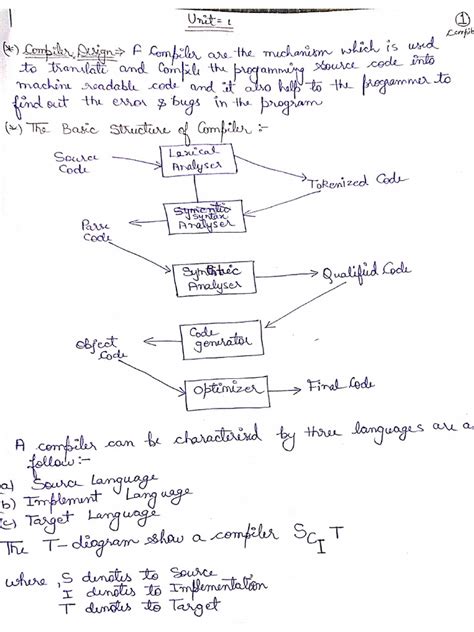 Unit = 1
①
Compiler
(*) Compiler Design => A Compiler are the mechanism which is used
to translate and Compile the progamming source code into
machine readable code and it also help to the programmer to
find out the error & bugs in the program
(*) The Basic Structure of Compiler :-
Source Code
Lexical Analyser
Tokenized Code
Syntax Analyser
Parse Code
Analyser
Qualified Code
Code generator
Object Code
Optimizer
Final Code
A compiler can be characterised by three languages are a
follow:-
a) Source Language
b) Implement Language
(c) Target Language
The T-diagram show a compiler SCIT
where, S denotes to Source
I denotes to Implementation
T denotes to Target